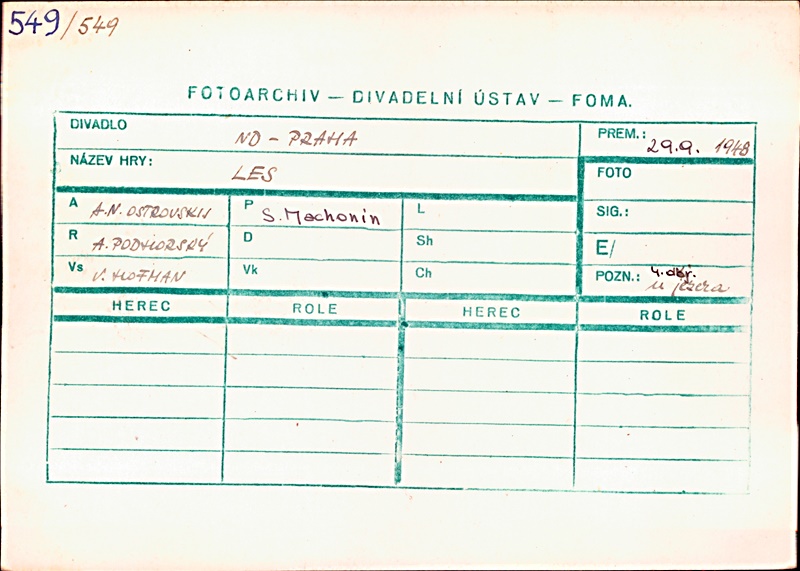 549/549
FOTOARCHIV – DIVADELNÍ ÚSTAV – FOMA.
DIVADLO ND – PRAHA
PREM.: 29.9. 1948
NÁZEV HRY: LES
FOTO
A A.N. OSTROVSKIJ
P S. Machonin
L
SIG.:
R A. PODHORSKÝ
D
Sh
E/
Vs V. HOFMAN
Vk
Ch
POZN.: 4. obr.
u jezera
HEREC ROLE HEREC ROLE